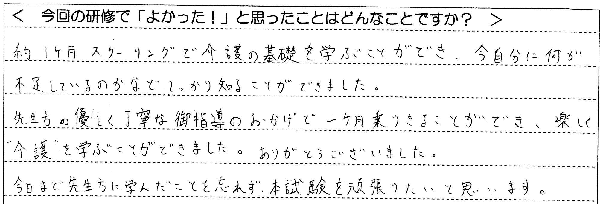 < 今回の研修で「よかった！」と思ったことはどんなことですか？ >
約1ヶ月 スクーリングで介護の基礎を学ぶことができ、今自分に何が
不足しているのかなどしっかり知ることができました。
先生方の優しく丁寧な御指導のおかげで一ヶ月乗りきることができ、楽しく
"介護"を学ぶことができました。ありがとうございました。
今日まで先生方に学んだことを忘れず、本試験を頑張りたいと思います。